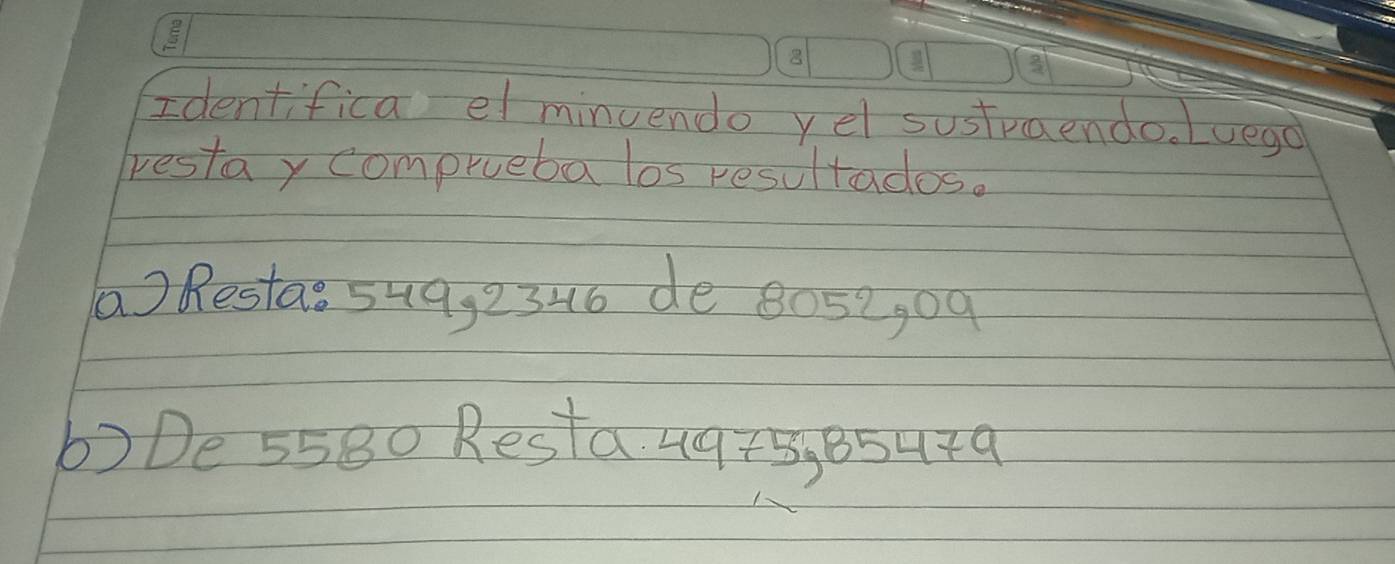 Tema
Identifica el minuendo y el sustraendo. Luego
resta y comprueba los resultados.
a) Resta: 549,2346 de 8052,09
b) De 5580 Resta. 4975,85479